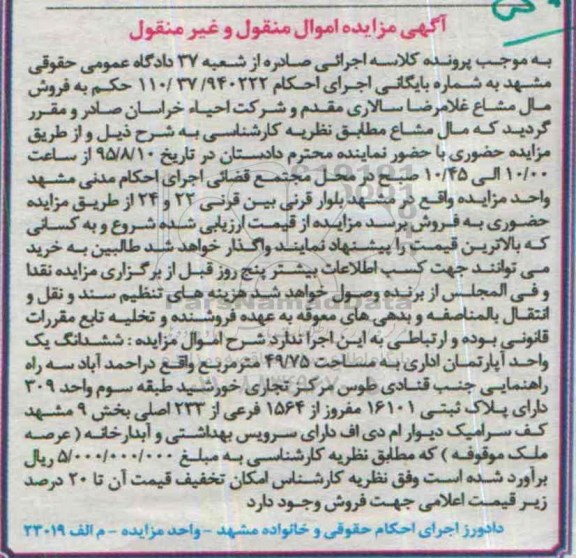 آگهی مزایده اموال منقول و غیر منقول
به موجب پرونده کلاسه اجرائی صادره از شعبه ۳۷ دادگاه عمومی حقوقی
مشهد به شماره بایگانی اجرای احکام ۹۴۰۲۲۲/ ۳۷ /۱۱۰ حکم به فروش
مال مشاع غلامرضا سالاری مقدم و شرکت احیاء خراسان صادر و مقرر
گردید که مال مشاع مطابق نظریه کارشناسی به شرح ذیل و از طریق
مزایده حضوری با حضور نماینده محترم دادستان در تاریخ ۹۵/۸/۱۰ از ساعت
۱۰/۰۰ الی ۱۰/۴۵ صبح در محل مجتمع قضائی اجرای احکام مدنی مشهد
واحد مزایده واقع در مشهد بلوار قرنی بین قرنی ۲۲ و ۲۴ از طریق مزایده
حضوری به فروش برسد مزایده از قیمت ارزیابی شده شروع و به کسانی
که بالاترین قیمت را پیشنهاد نمایند واگذار خواهد شد طالبین به خرید
می توانند جهت کسب اطلاعات بیشتر پنج روز قبل از برگزاری مزایده نقدا
و فی المجلس از برنده وصول خواهد شد هزینه های تنظیم سند و نقل و
انتقال بالمناصفه و بدهی های معوقه به عهده فروشنده و تخلیه تابع مقررات
قانونی بوده و ارتباطی به این اجرا ندارد شرح اموال مزایده : ششدانگ یک
واحد آپارتمان اداری به مساحت ۴۹/۷۵ مترمربع واقع دراحمد آباد سه راه
راهنمایی جنب قنادی طوس مرکز تجاری خورشید طبقه سوم واحد ۳۰۹
دارای پلاک ثبتی ۱۶۱۰۱ مفروز از ۱۵۶۴ فرعی از ۲۳۳ اصلی بخش ۹ مشهد
کف سرامیک دیوار ام دی اف دارای سرویس بهداشتی و آبدارخانه ( عرصه
ملک موقوفه ) که مطابق نظریه کارشناسی به مبلغ ۵/۰۰۰/۰۰۰/۰۰۰ ریال
برآورد شده است وفق نظریه کارشناس امکان تخفیف قیمت آن تا ۲۰ درصد
زیر قیمت اعلامی جهت فروش وجود دارد
دادورز اجرای احکام حقوقی و خانواده مشهد - واحد مزایده - م الف ۲۳۰۱۹
ParsNamadData